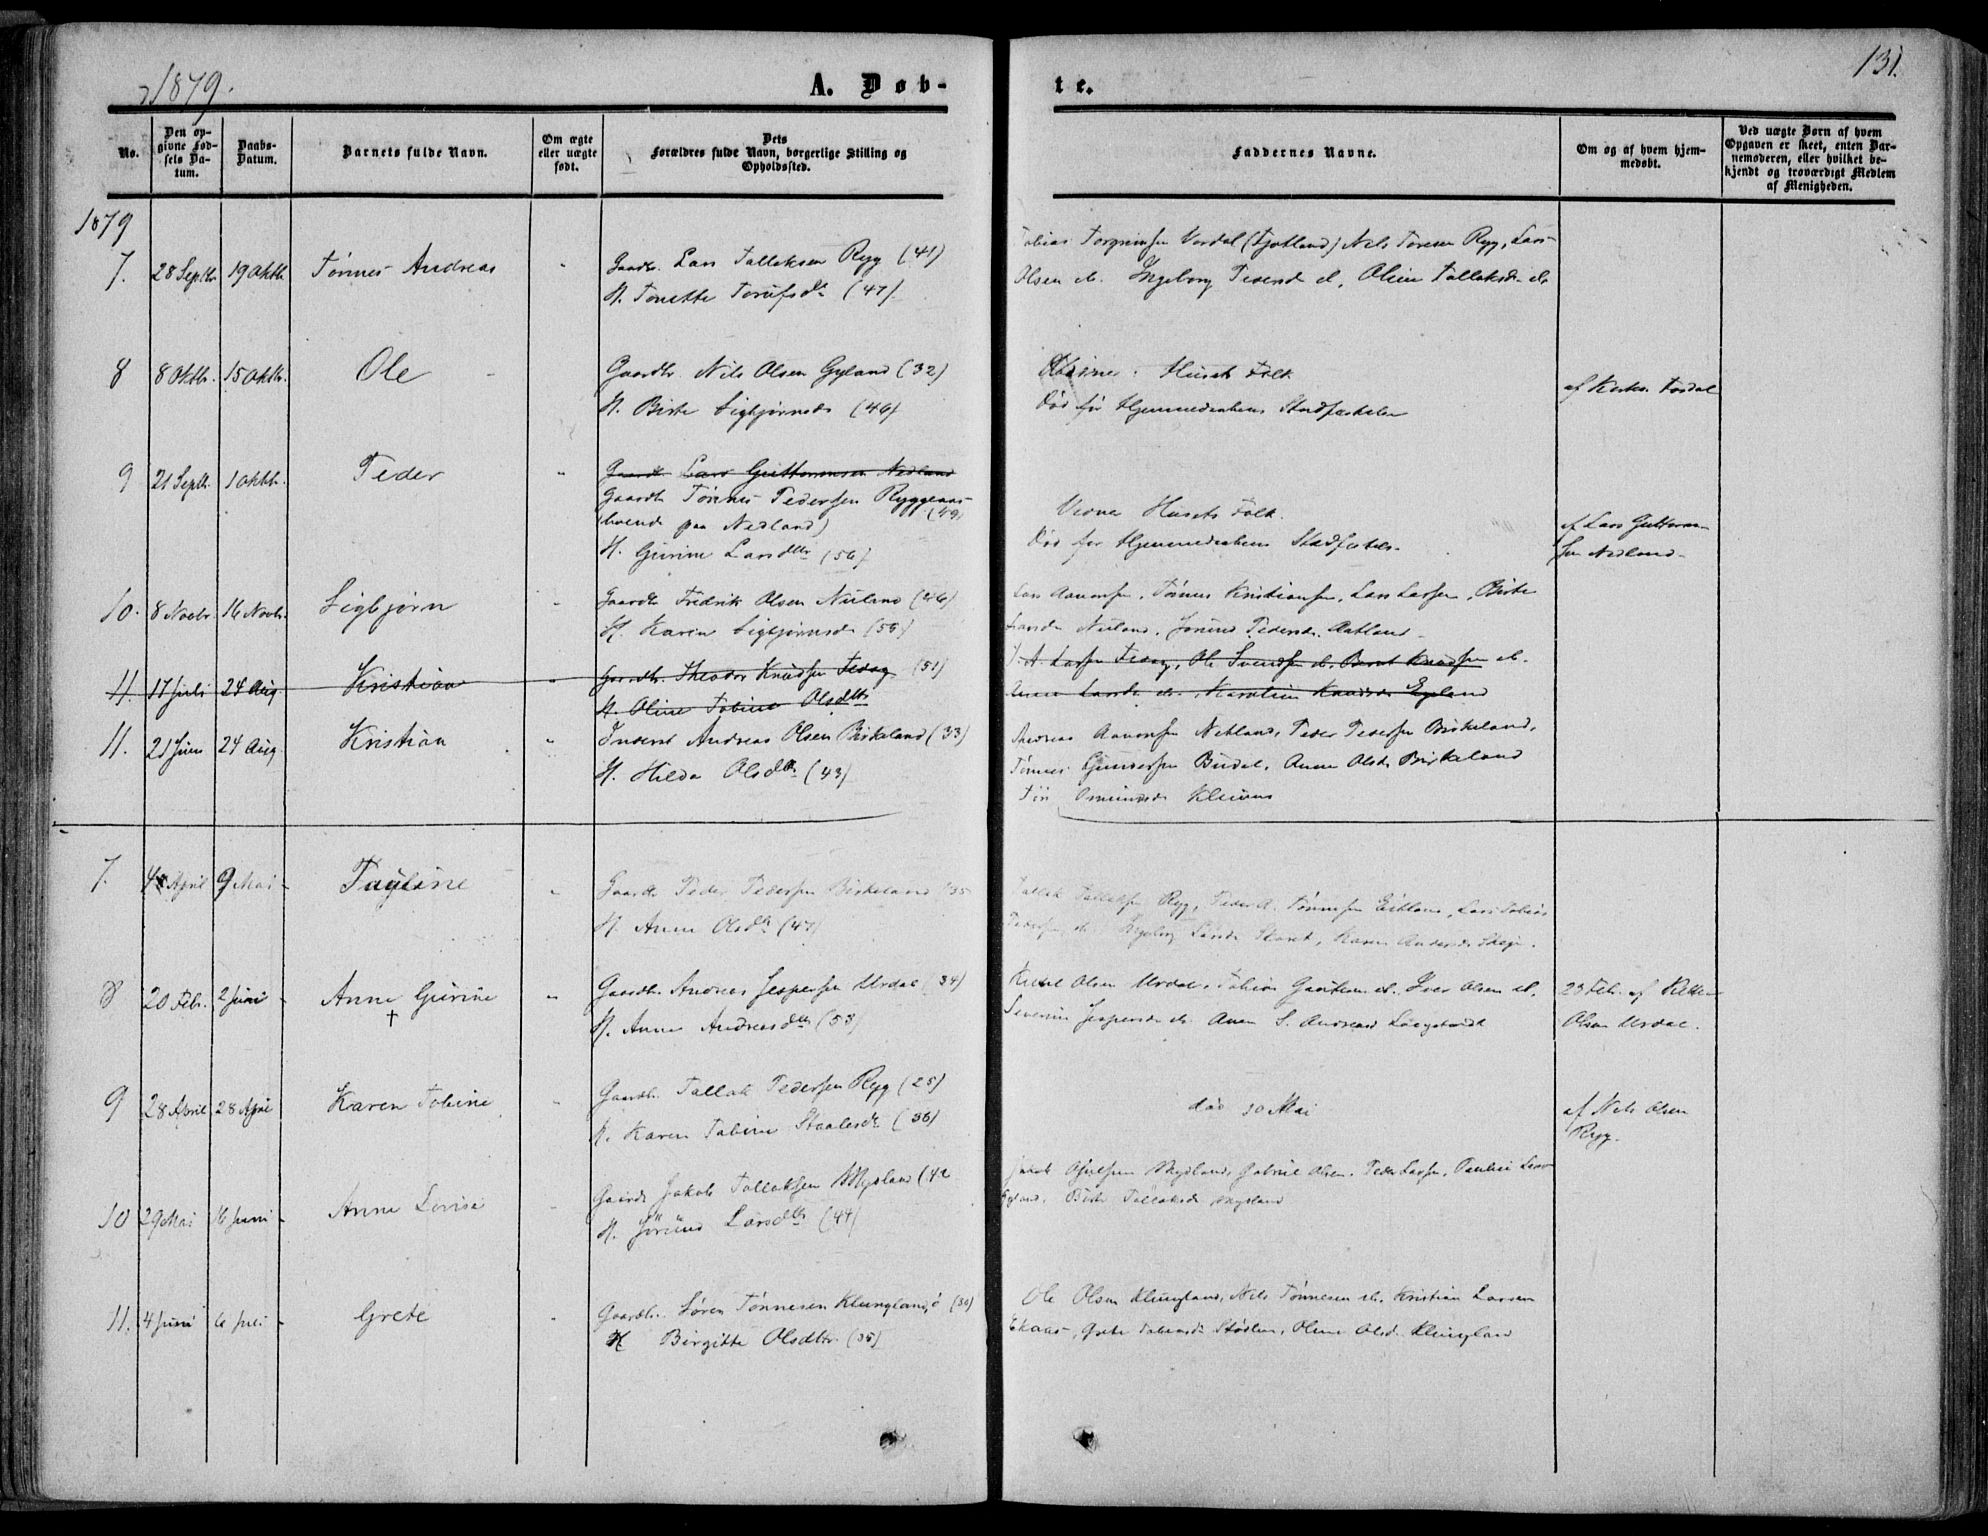 1879.
A. Døb-
te.
131.
No.
Den op-
givne Fød-
sels Da-
tum.
Daabs-
Datum.
Barnets fulde Navn.
Om ægte
eller uægte
født.
Dets
Forældres fulde Navn, borgerlige Stilling og
Opholdssted.
Faddernes Navne.
Om og af hvem hjem-
medøbt.
Ved uægte Børn af hvem
Opgaven er skeet, enten Bar-
nemoderen, eller hvilket be-
kjendt og troværdigt Medlem
af Menigheden.
1879
7. 28 Septbr. 19 Oktbr. Tønnes Andreas " Gaardbr. Lars Tallaksen Ryg (41)
H. Tonette (47)
Tobias Torgrimsen (Fjotland) Nils Ryg, Lars
Olsen d. Ingeborg d. Oline Tallaksd. d.
8 8 Oktbr. 15 Oktbr. Ole - Gaardbr. Nils Olsen Gyland (32)
H. Birte Sigbjørnsd. (46)
Husets Folk
Død før Hjemmedaabens Stadfæstelse
9 21 Septb. 1 Oktbr. Peder " Gaardb. Lars Guttormsen Nedland
Gaardb. Tønnes Pedersen Ryggeaas (49)
(boende paa Nedland)
H. Gurine Larsdtr (56)
Husets Folk.
Død før Hjemmedaabens Stadfæstels.
af Lars Guttorm-
sen Nedland.
10. 8 Novbr. 16 Novbr. Sigbjørn " Gaardb. Fredrik Olsen Nuland (46)
H. Karen Sigbjørnsd. (55)
Lars Aanonsen, Tønnes Kristiansen, Lars Larsen, Birte
Larsd. Nuland, Pedersd. Aatland
11. 17 Juli 24 Aug. Kristian " Gaardbr. Theodor Knudsen Fedog (51)
H. Oline Tobine Olsdtr
Larsen Fedog, Ole Svendsen d. Bernt Knudsen d.
Anne Larsd. d. Karoline Knudsd. Egeland
11. 21 Juni 24 Aug. Kristian " Inderst Andreas Olsen Birkeland (33)
H. Hilda Olsdtr. (43)
Andreas Aanonsen Netland, Peder Pedersen Birkeland,
Tønnes Gundersen, Anne Olsd. Birkeland
Osmundsd.
7. 4 April 9 Mai " Gaardb. Peder Pedersen Birkeland (35
H. Anne Olsdtr (47)
Tallak Tallaksen Ryg, Peder A. Tønnesen, Lars Tobias
Pedersen d. Ingeborg Larsd., Karen Andersd.
8 20 Feb. 2 Juni Anne Gurine † " Gaardb. Andreas Jespersen Urdal (34)
H. Anne Andreasdtr (53)
Olsen Urdal, Tobias d. Iver Olsen d.
Severine Jespersd. d. Anne S. Andreasd.
23 Feb. af
Olsen Urdal.
9 28 April 28 April Karen Tobine Gaardb. Tallak Pedersen Ryg (25)
H. Karen Tobine Staalesd. (36)
død 10 Mai
af Nils Olsen
Ryg.
10 29 Mai 16 Juni Anne Lovise Gaardb. Jakob Tallaksen Mysland (42
H. Jørund Larsdtr (44)
Jakob Mysland, Gabriel Olsen, Peder Larsen, Pauline
Gyland, Birte Tallaksd. Mysland
11. 4 Juni 6 Juli Grete Gaardb. Søren Tønnesen Klungland (30)
H Birgitte Olsdtr. (35)
Ole Olsen Klungland, Nils Tønnesen d. Kristian Larsen
Ekaas, Grete Tobiasd., Oline Olsd. Klungland